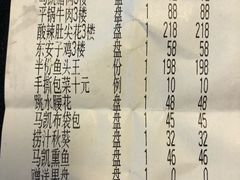 平锅牛肉3楼 盘 1 88 88
酸辣肚尖花3楼 盘 1 218 218
东安子鸡3楼 盘 1 58 58
半份鱼头王 份 1 198 198
手撕包菜十元 例 1 10 10
跳水腰花 盘 1 48 48
马凯布袋包 盘 1 45 45
捞汁秋葵 盘 1 32 32
马凯熏鱼 盘 1 46 46
赠送果盘 盘 1 0 0